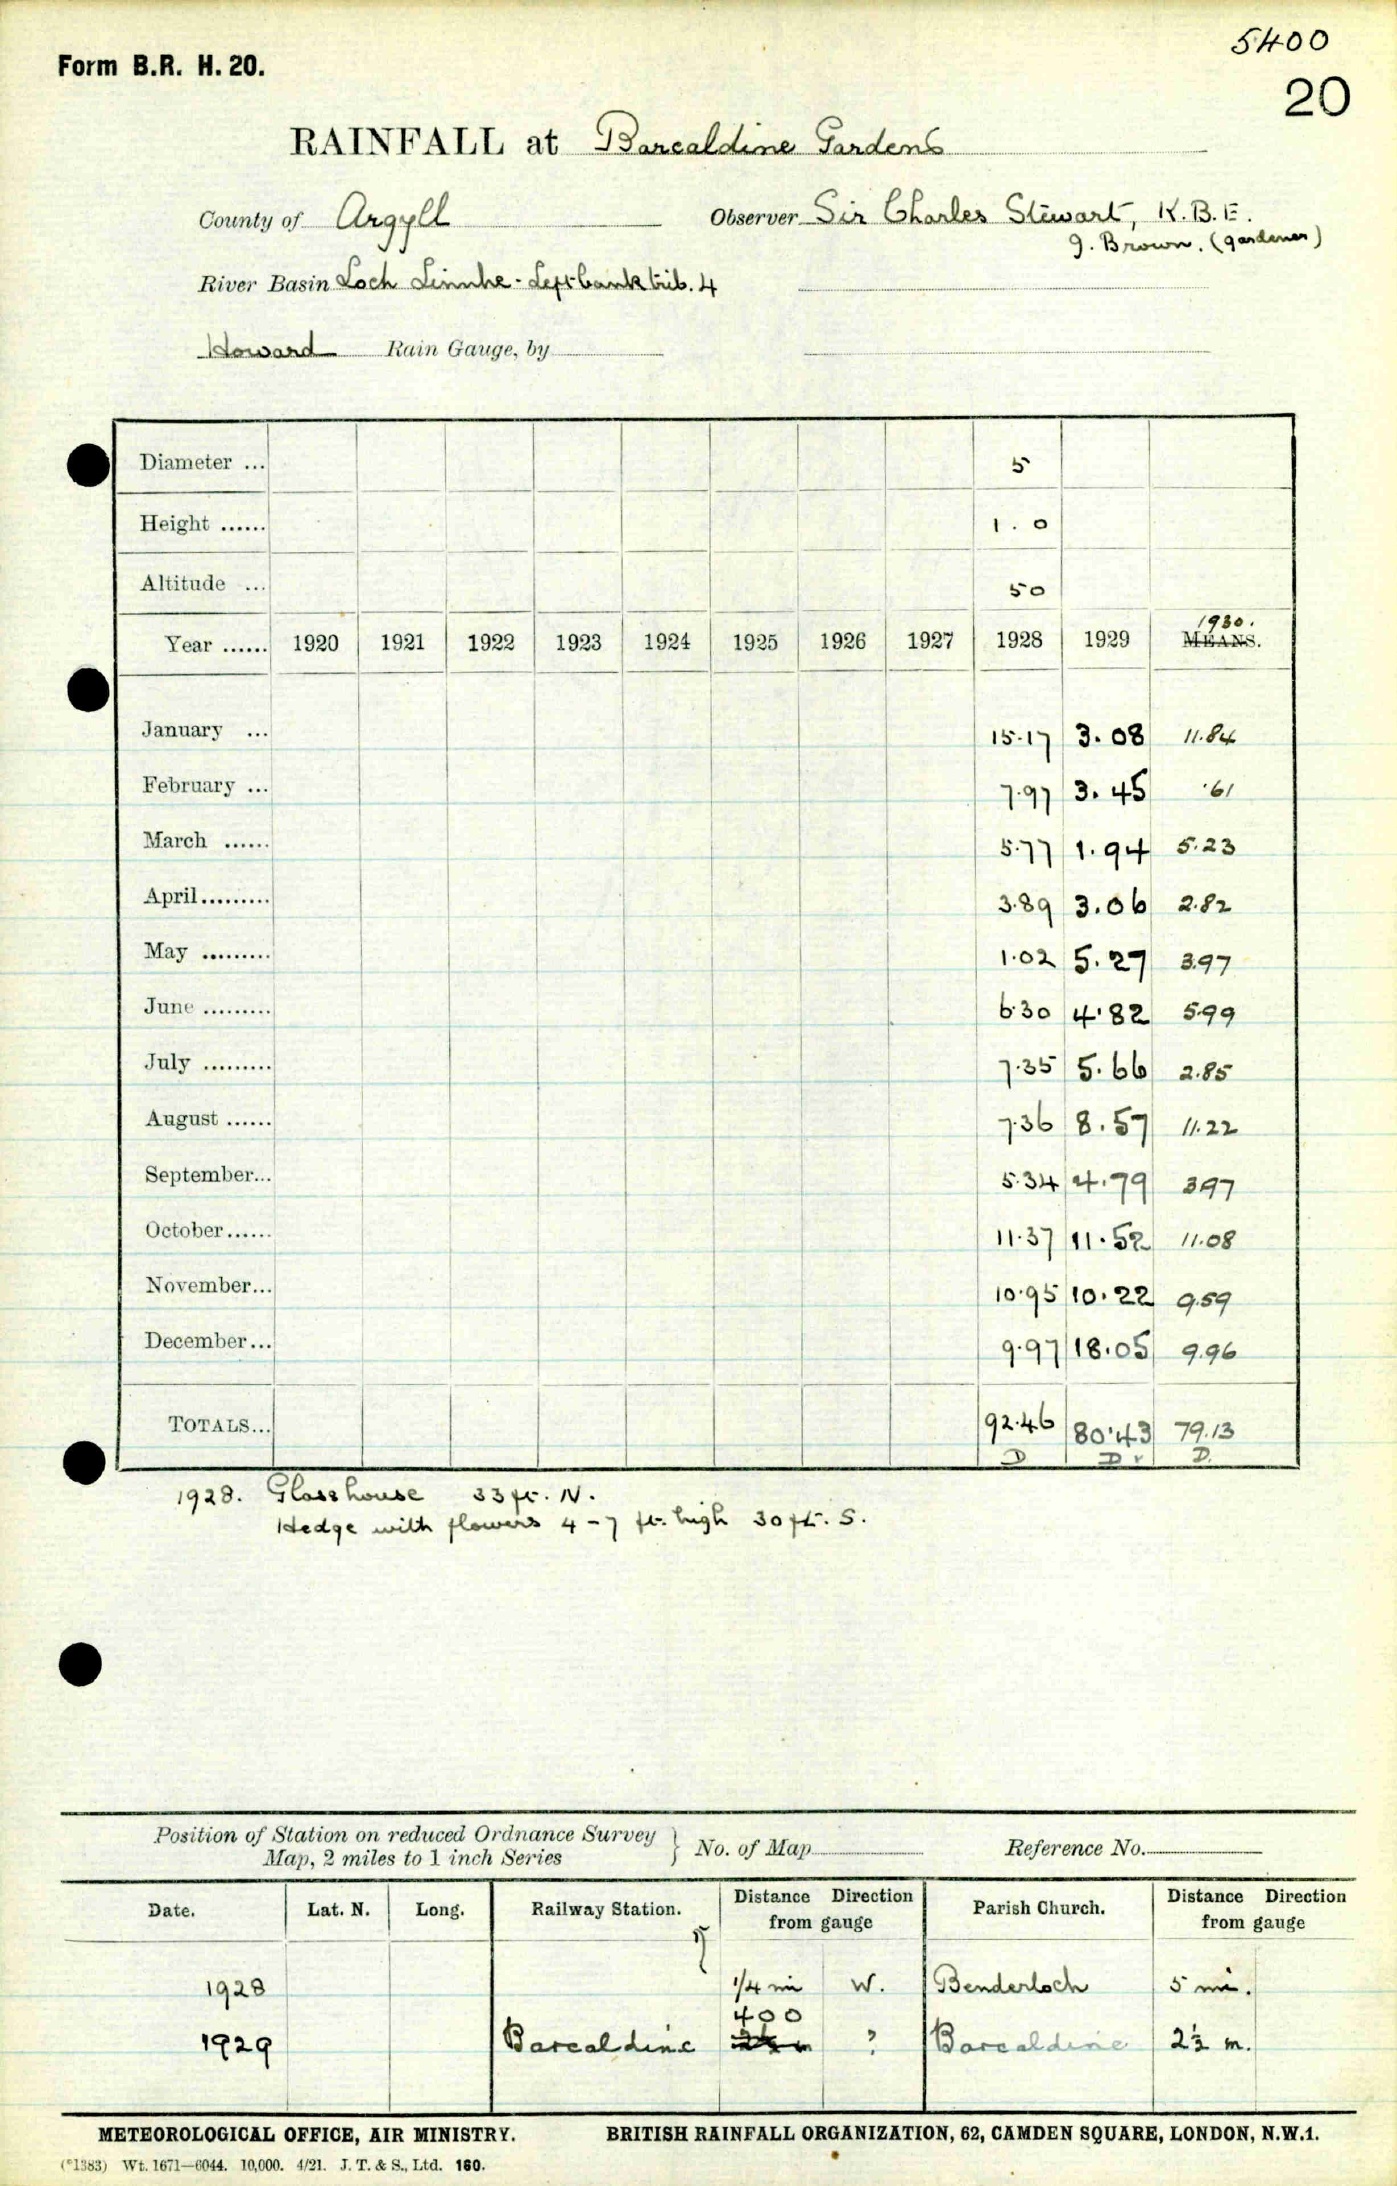 5400
Form B.R. H. 20.
20
RAINFALL at Barcaldine Gardens
County of Argyll Observer Sir Charles Stewart, K.B.E.
J. Brown. (gardener)
River Basin Loch Linnhe - Left bank trib. 4
Howard Rain Gauge, by
Diameter ... 5
Height ...... 1.0
Altitude ... 50
1930.
Year ...... 1920 1921 1922 1923 1924 1925 1926 1927 1928 1929 MEANS.
January ... 15.17 3.08 11.84
February ... 7.97 3.45 .61
March ...... 5.77 1.94 5.23
April......... 3.89 3.06 2.82
May ......... 1.02 5.27 3.97
June ......... 6.30 4.82 5.99
July ......... 7.35 5.66 2.85
August ...... 7.36 8.57 11.22
September... 5.34 4.79 3.97
October...... 11.37 11.52 11.08
November... 10.95 10.22 9.59
December... 9.97 18.05 9.96
TOTALS... 92.46 80.43 79.13
D D r D.
1928. Glasshouse 33 ft. N.
Hedge with flowers 4 - 7 ft. high 30 ft. S.
Position of Station on reduced Ordnance Survey
Map, 2 miles to 1 inch Series } No. of Map Reference No.
Date. Lat. N. Long. Railway Station. Distance Direction from gauge Parish Church. Distance Direction from gauge
1928 1/4 mi W. Benderloch 5 mi.
400
1929 Barcaldine ? Barcaldine 2½ m.
METEOROLOGICAL OFFICE, AIR MINISTRY. BRITISH RAINFALL ORGANIZATION, 62, CAMDEN SQUARE, LONDON, N.W.1.
(*1383) Wt. 1671—6044. 10,000. 4/21. J. T. & S., Ltd. 160.